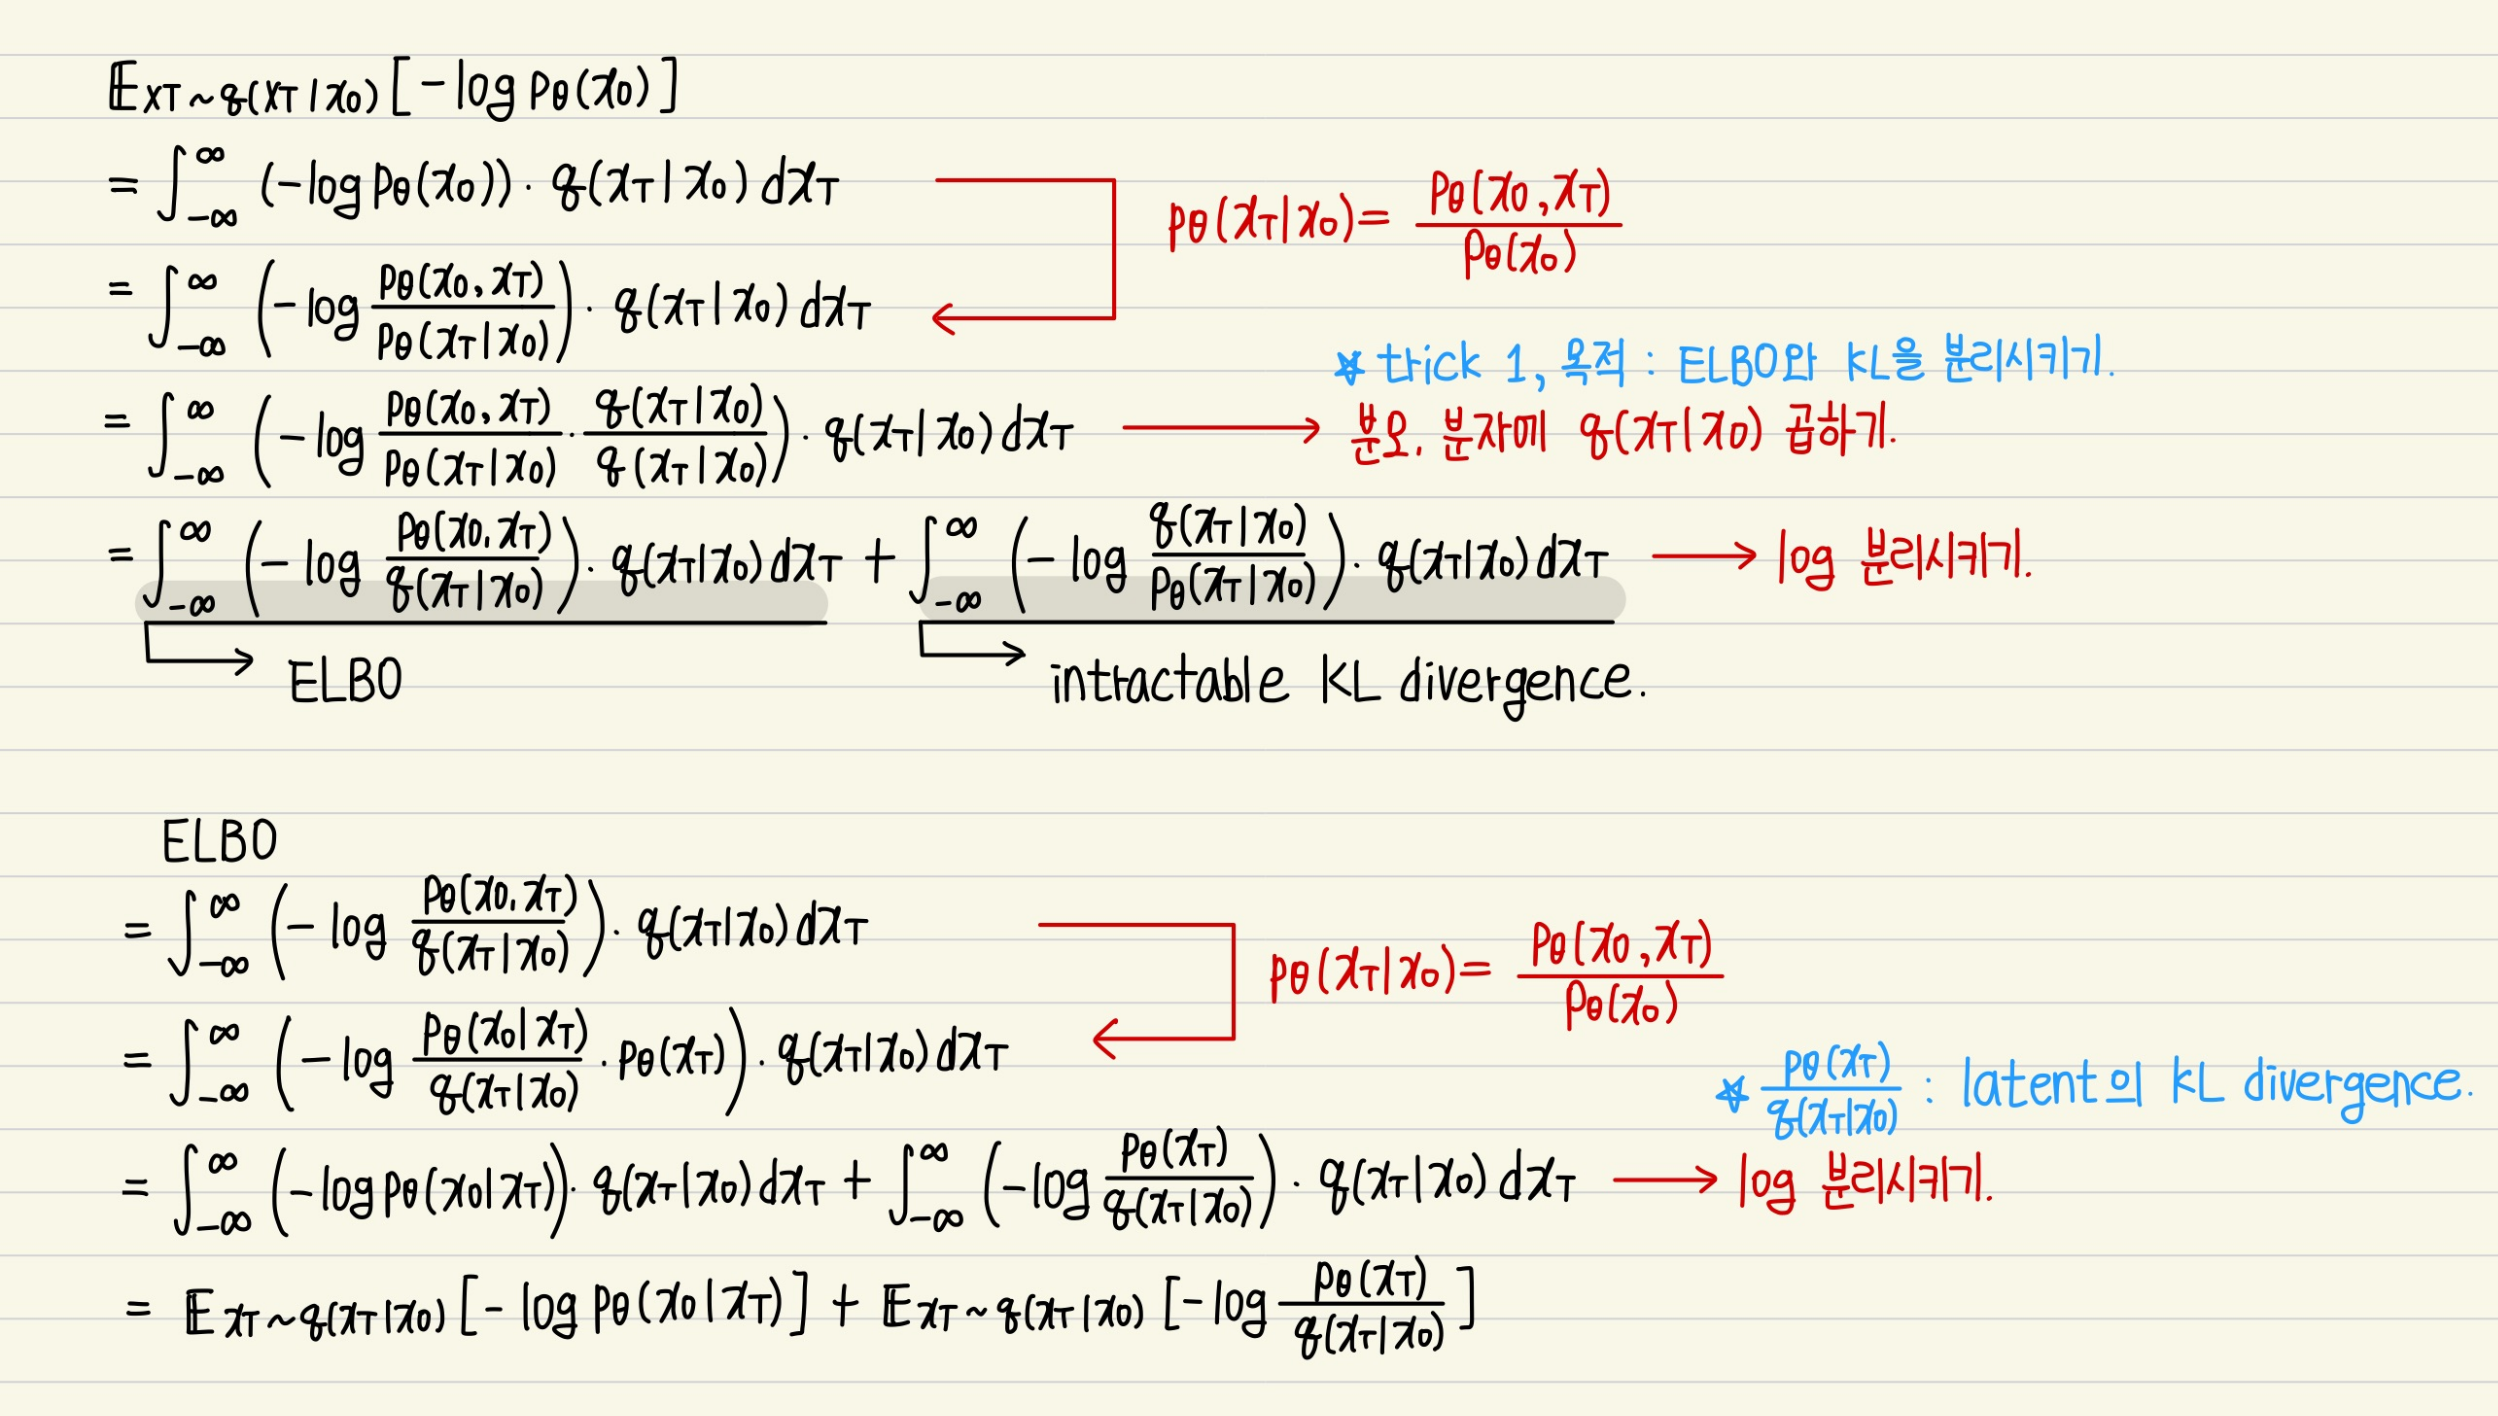 𝔼xT~q(xT|x0) [-log pθ(x0)]
= ∫_{-∞}^{∞} (-log pθ(x0)) · q(xT|x0) dxT
pθ(xT|x0) = pθ(x0, xT) / pθ(x0)
= ∫_{-∞}^{∞} (-log pθ(x0, xT) / pθ(xT|x0)) · q(xT|x0) dxT
☆ trick 1, 목적 : ELBO와 KL을 분리시키기.
= ∫_{-∞}^{∞} (-log pθ(x0, xT) / pθ(xT|x0) · q(xT|x0) / q(xT|x0)) · q(xT|x0) dxT → 분모, 분자에 q(xT|x0) 곱하기.
= ∫_{-∞}^{∞} (-log pθ(x0, xT) / q(xT|x0)) · q(xT|x0) dxT + ∫_{-∞}^{∞} (-log q(xT|x0) / pθ(xT|x0)) · q(xT|x0) dxT → log 분리시키기.
ELBO
intractable KL divergence.
ELBO
= ∫_{-∞}^{∞} (-log pθ(x0, xT) / q(xT|x0)) · q(xT|x0) dxT
pθ(xT|x0) = pθ(x0, xT) / pθ(x0)
= ∫_{-∞}^{∞} (-log pθ(x0|xT) / q(xT|x0) · pθ(xT)) · q(xT|x0) dxT
☆ pθ(xT) / q(xT|x0) : latent의 KL divergence.
= ∫_{-∞}^{∞} (-log pθ(x0|xT)) · q(xT|x0) dxT + ∫_{-∞}^{∞} (-log pθ(xT) / q(xT|x0)) · q(xT|x0) dxT → log 분리시키기.
= 𝔼xT~q(xT|x0) [-log pθ(x0|xT)] + 𝔼xT~q(xT|x0) [-log pθ(xT) / q(xT|x0)]